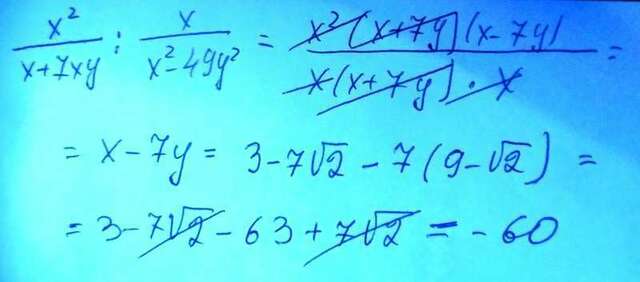 x²/(x+7xy) : x/(x²-49y²) = x²(x+7y)(x-7y)/(x(x+7y)·x) =
= x-7y = 3-7√2 - 7(9-√2) =
= 3-7√2-63+7√2 = -60